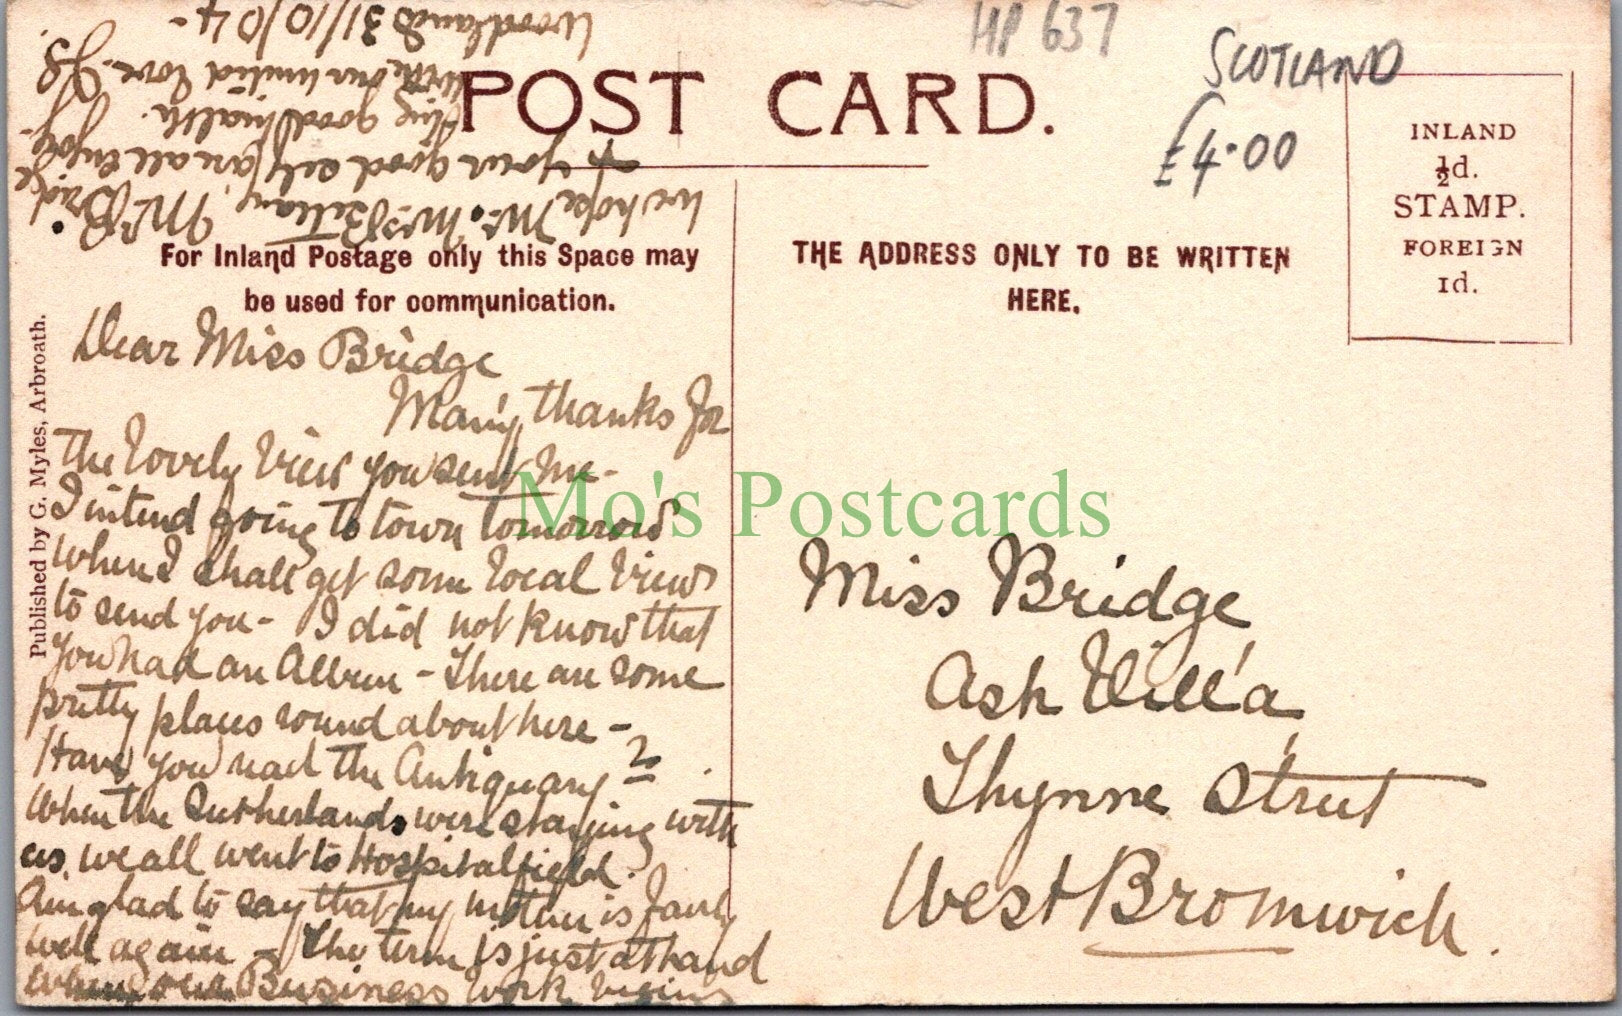 HP 637
SCOTLAND
£4.00
POST CARD.
INLAND
½d.
STAMP.
FOREIGN
1d.
For Inland Postage only this Space may
be used for communication.
THE ADDRESS ONLY TO BE WRITTEN
HERE.
Published by G. Myles, Arbroath.
Dear Miss Bridge
Many thanks for
the lovely view you sent me -
I intend going to town tomorrow
when I shall get some local views
to send you - I did not know that
you had an Album - There are some
pretty places round about here -
Have you read the Antiquary?
When the Sutherlands were staying with
us, we all went to Hospitalfield.
Am glad to say that my mother is fairly
well again - The term is just at hand
when our Business work begins
We hope Mr. Mrs Bellamy, Mr Bridge
& your good self are all enjoy-
ing good health.
With our united love. JS.
Woodlands 31/10/04 -
Miss Bridge
Ash Villa
Thynne Street
West Bromwich.
Mo's Postcards